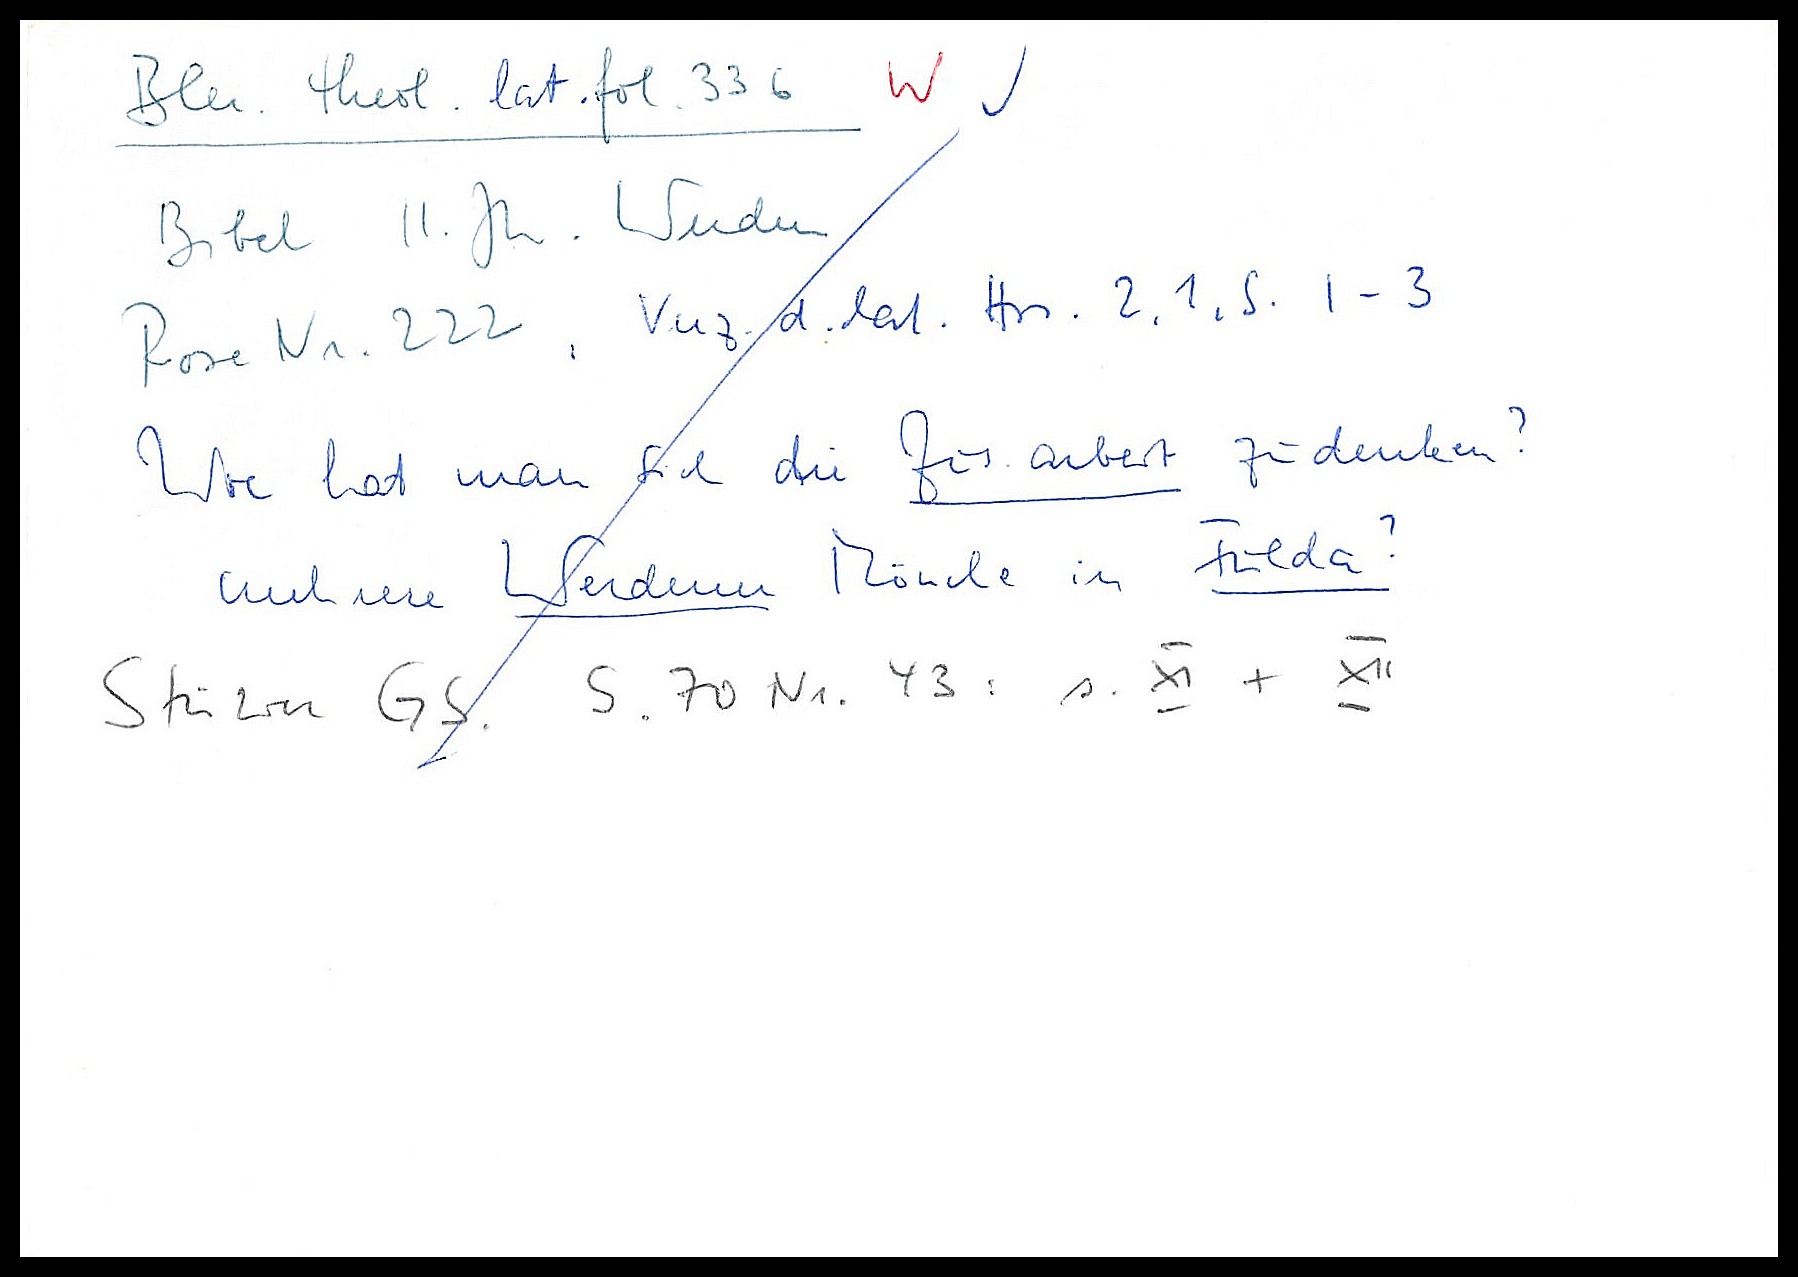 Bln. theol. lat. fol. 336 W
Bibel 11. Jh. Werden
Rose Nr. 222, Verz. d. lat. Hss. 2,1, S. 1-3
Wie hat man sich die Zus.arbeit zu denken?
mehrere Werdener Mönche in Fulda?
Stüwer GS. S. 70 Nr. 43: s. XI + XII